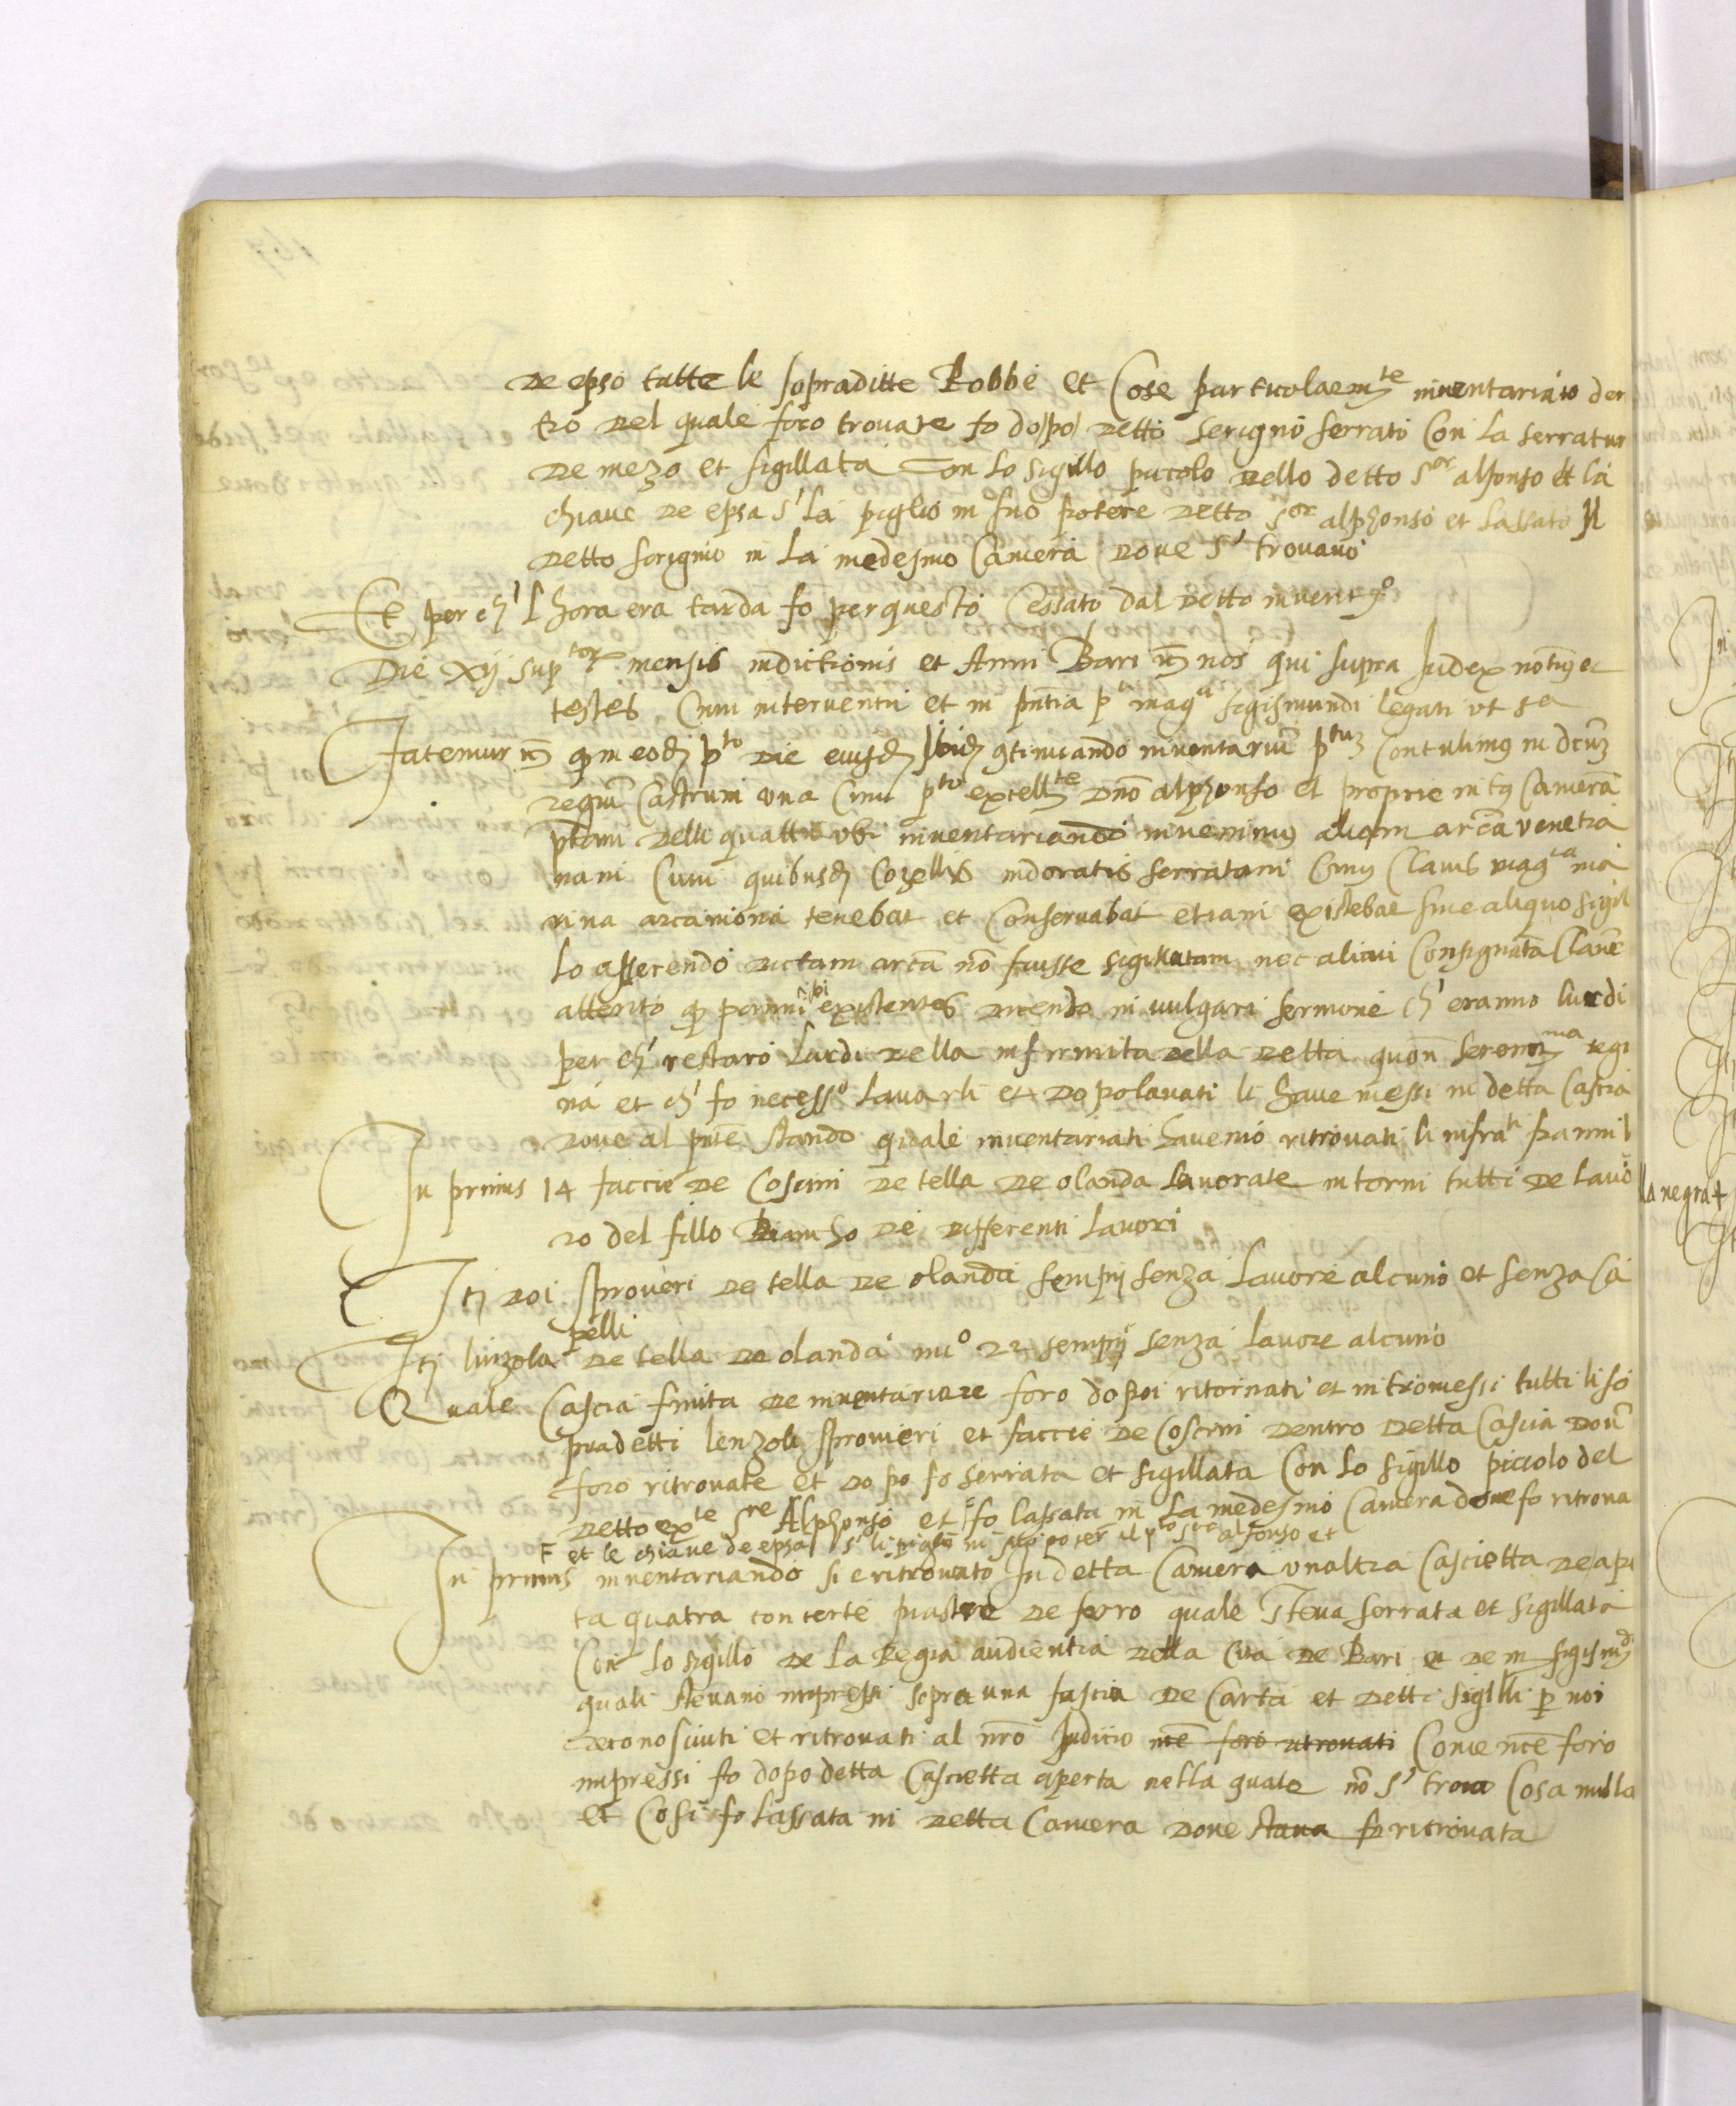 de epso tutte le sopraditte Robbe et Cose particolaem^te inventariato den
tro del quale foro trovate fo dopo detto serigno serrato Con la serratur
de mezo et sigillata con lo sigillo picolo dello detto S^or alfonso et la
chiave de epsa s' la pigliò in suo potere detto S^or alphonso et lassato il
detto scrignio in la medesmo Camera dove s' trovano
Et per ch' l hora era tarda fo per questo Cessato dal detto invent^o
Die xij sup^tor mensis indictionis et Anni Bari nos qui supra Judex not et
testes Cum interventu et in pntia p^ti mag^ci sigismundi legati ut s^a
Fatemur q in eod p^to die eiusd ibid continuando inventarium p^tum Contulimus in dcum
regium Castrum una Cum p^to excell^te dno alphonso et proprie intus Camera
ptam delli quattro ubi inventariando invenimus aliam arca venetia
nam Cum quibusd Cozellis indoratis serratam Cuius Clavis mag^ca ma
rina arcamona tenebat et Conservabat etiam existebat sine aliquo sigil
lo asserendo dictam arca no fuisse sigillatam nec alicui Consignata Clave
attento q panni ibi existentes dicendo in vulgari sermone ch' eranno lurdi
per ch' restaro lurdi della infirmita della detta quon seren^ma regi
na et ch' fo necess^o lavarli et dopo lavati li have messi in detta Cascia
dove al pnte stando quale inventariati havemo ritrovati li infra^ti pannil
In primis 14 faccie de Coscini de tella de olanda lavorate intorni tutti de lavo
ro del fillo biancho de differenti lavori
It doi sproveri de tella de olanda sempij senza lavore alcuno et senza Ca
pelli
It linzola de tella de olanda nu^o 22 sempij senza lavore alcuno
Quale Cascia finita de inventariare foro dopoi ritornati et intromessi tutti li so
pradetti lenzoli sprovieri et faccie de Coscini dentro detta Cascia dove
foro ritrovate et dopo fo serrata et sigillata Con lo sigillo piccolo del
detto ex^te S^re Alphonso et fo lassata in la medesmo Camera dove fo ritrova
et le chiave de epsa s' li pigliò in suo poter il p^to S^re alfonso et
In primis inventariando si e ritrovato In detta Camera unaltra Cascietta de api
ta quatra con certe piastre de ferro quale steva serrata et sigillata
Con lo sigillo de la Regia audientia della Cita de Bari et de m sigism^di
quali stevano impressi sopra una fascia de Carta et detti sigilli p noi
reconosciuti et ritrovati al nro Juditio nte foro ritrovati Come nte foro
impressi fo dopo detta Cascietta aperta nella quale no s' trova Cosa nulla
et Cosi fo lassata in detta Camera dove stava fo ritrovata
la negra +